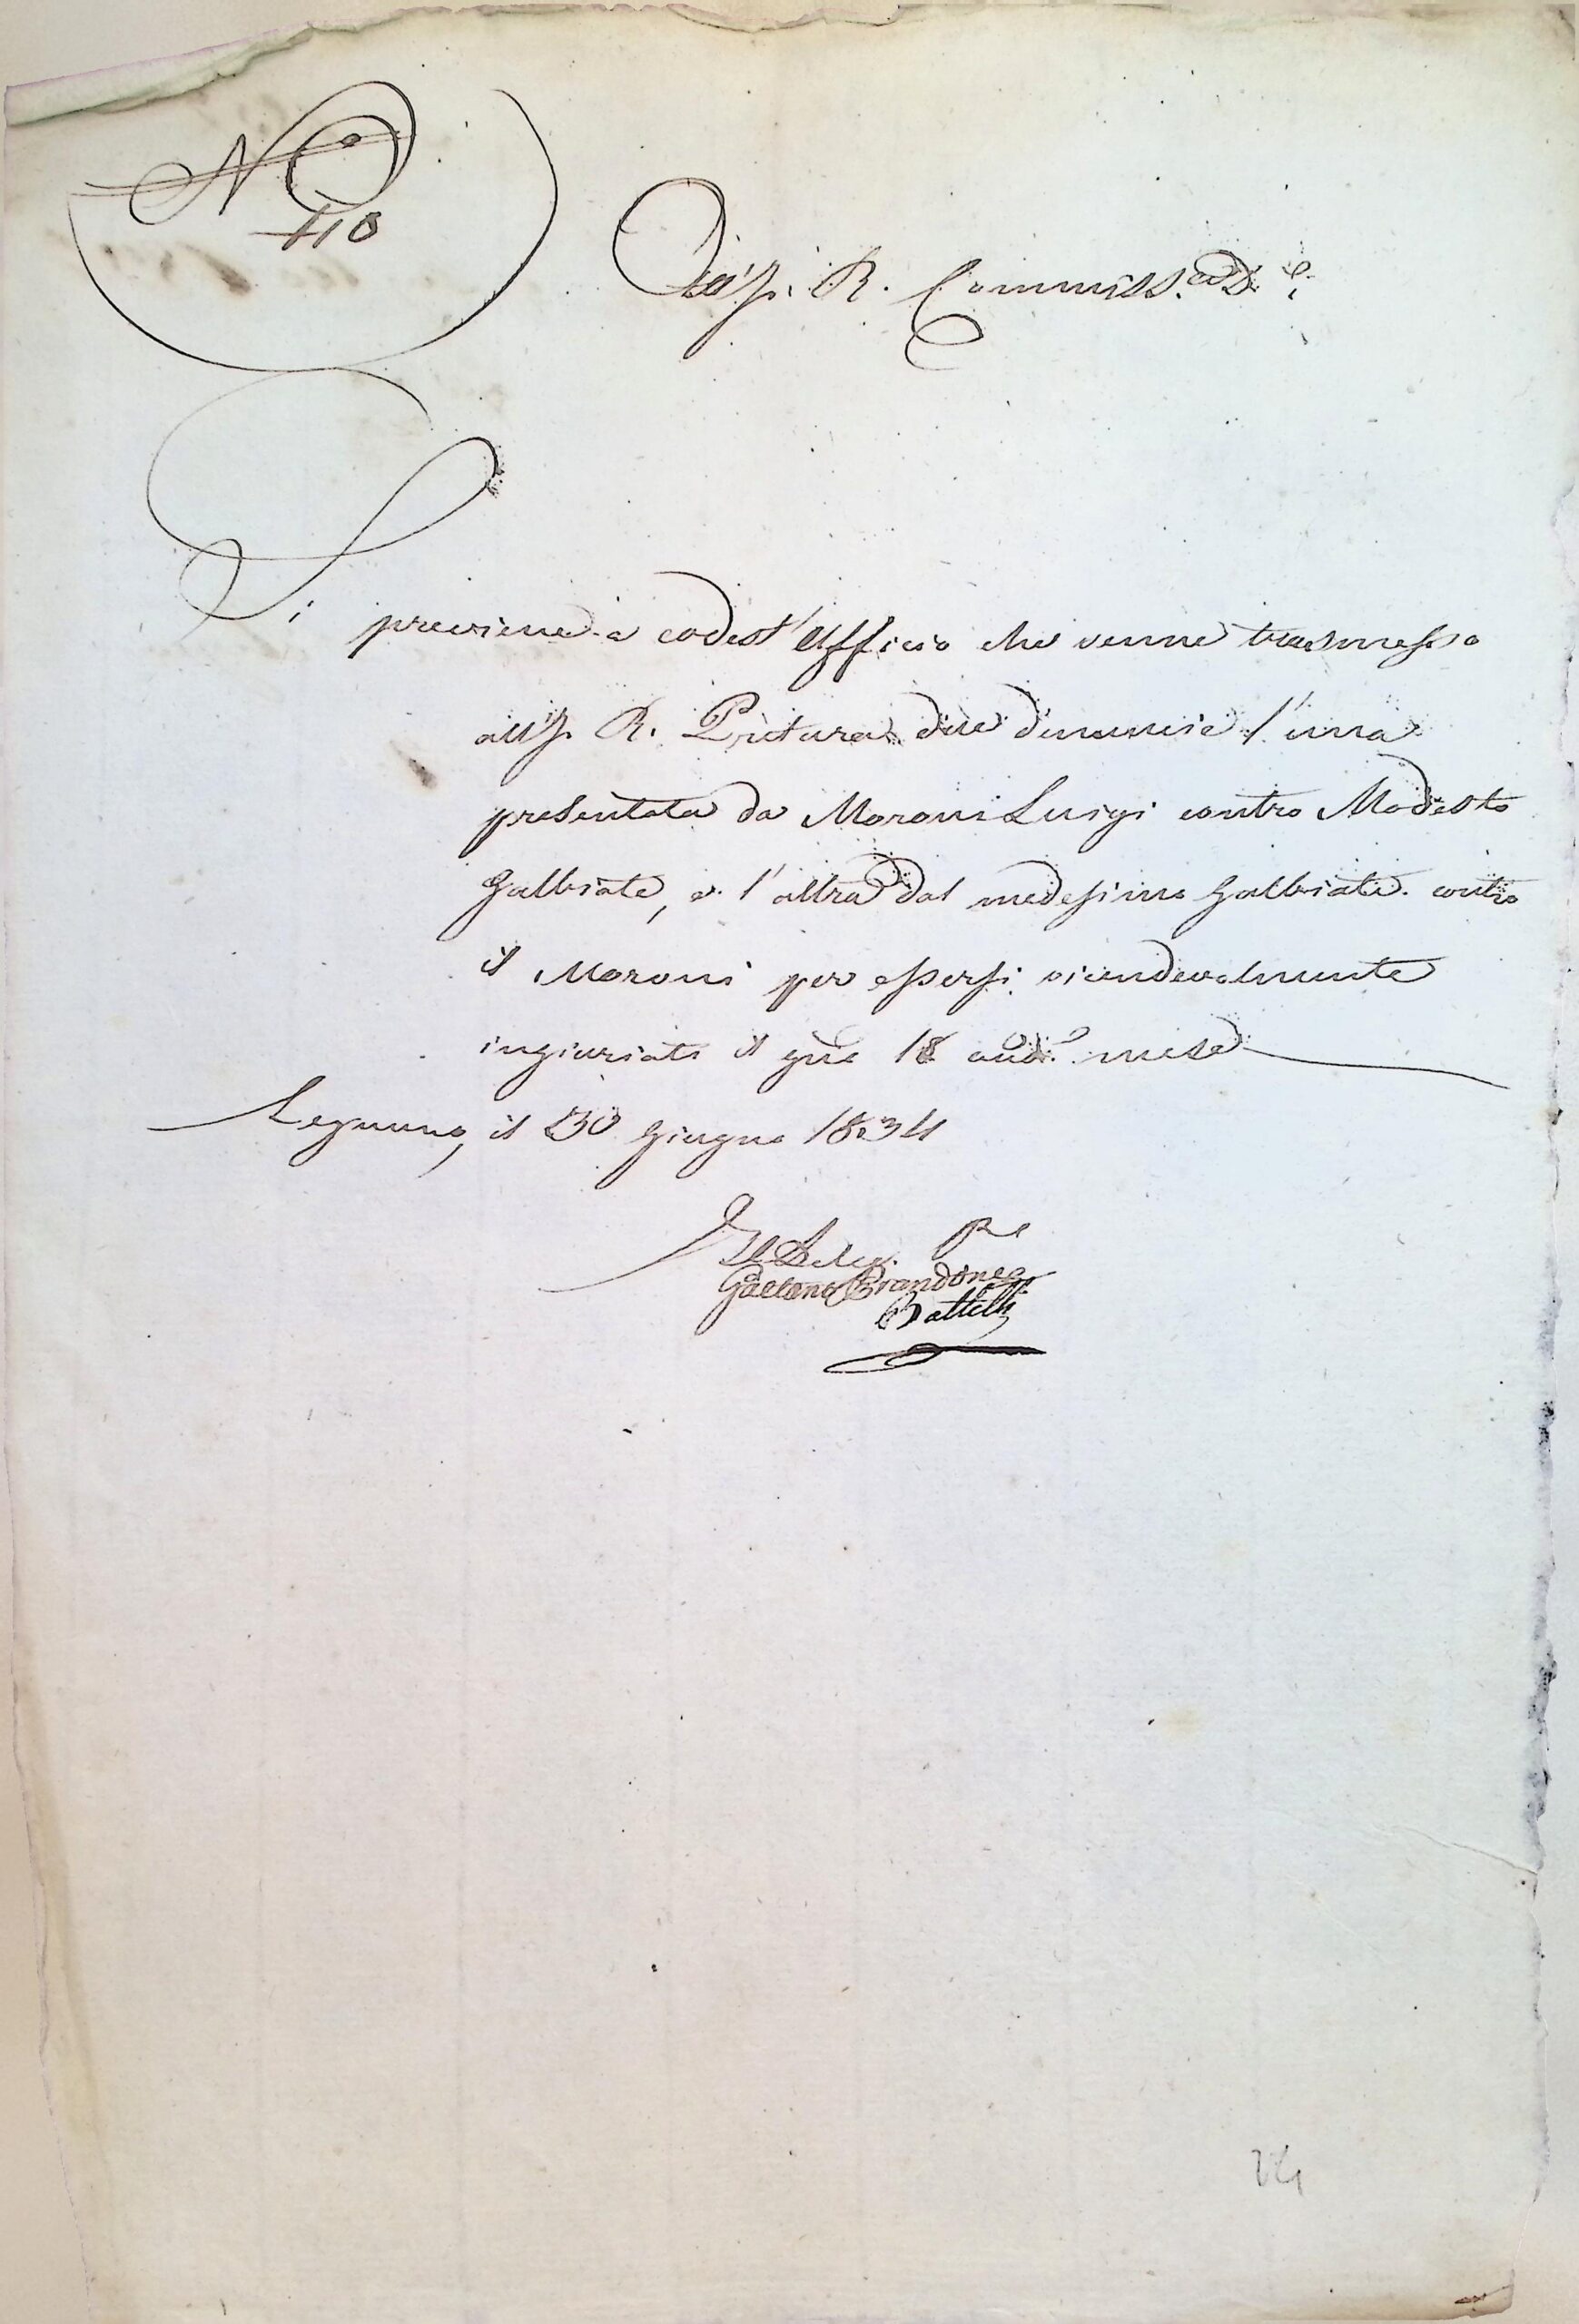 N°
110
All'I. R. Commiss.° D.e
Si previene a codest'Ufficio che venne trasmesso
all'I. R. Pretura due dinuncie l'una
presentata da Moroni Luigi contro Modesto
Galbiate, e l'altra dal medesimo Galbiate contro
il Moroni per essersi vicendevolmente
ingiuriati il gno 18 and.e mese
Legnano, il 30 Giugno 1834
Il Deleg.
Gaetano Brandones
24